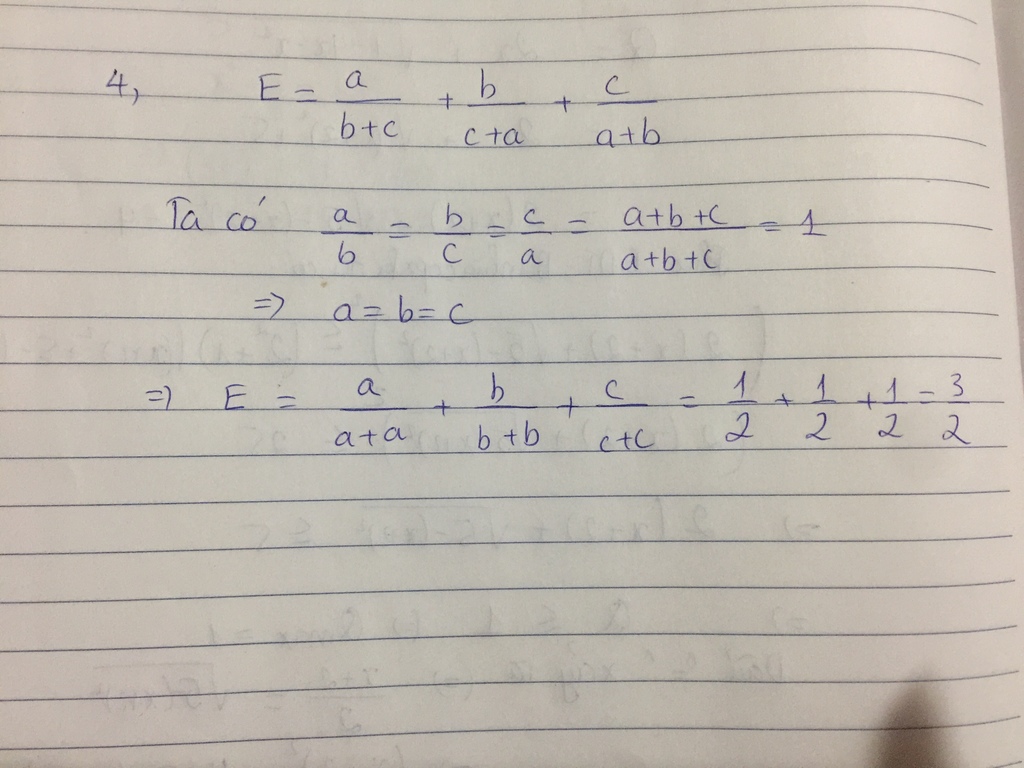 4, E = a/(b+c) + b/(c+a) + c/(a+b)
Ta có a/b = b/c = c/a = (a+b+c)/(a+b+c) = 1
=> a = b = c
=> E = a/(a+a) + b/(b+b) + c/(c+c) = 1/2 + 1/2 + 1/2 = 3/2